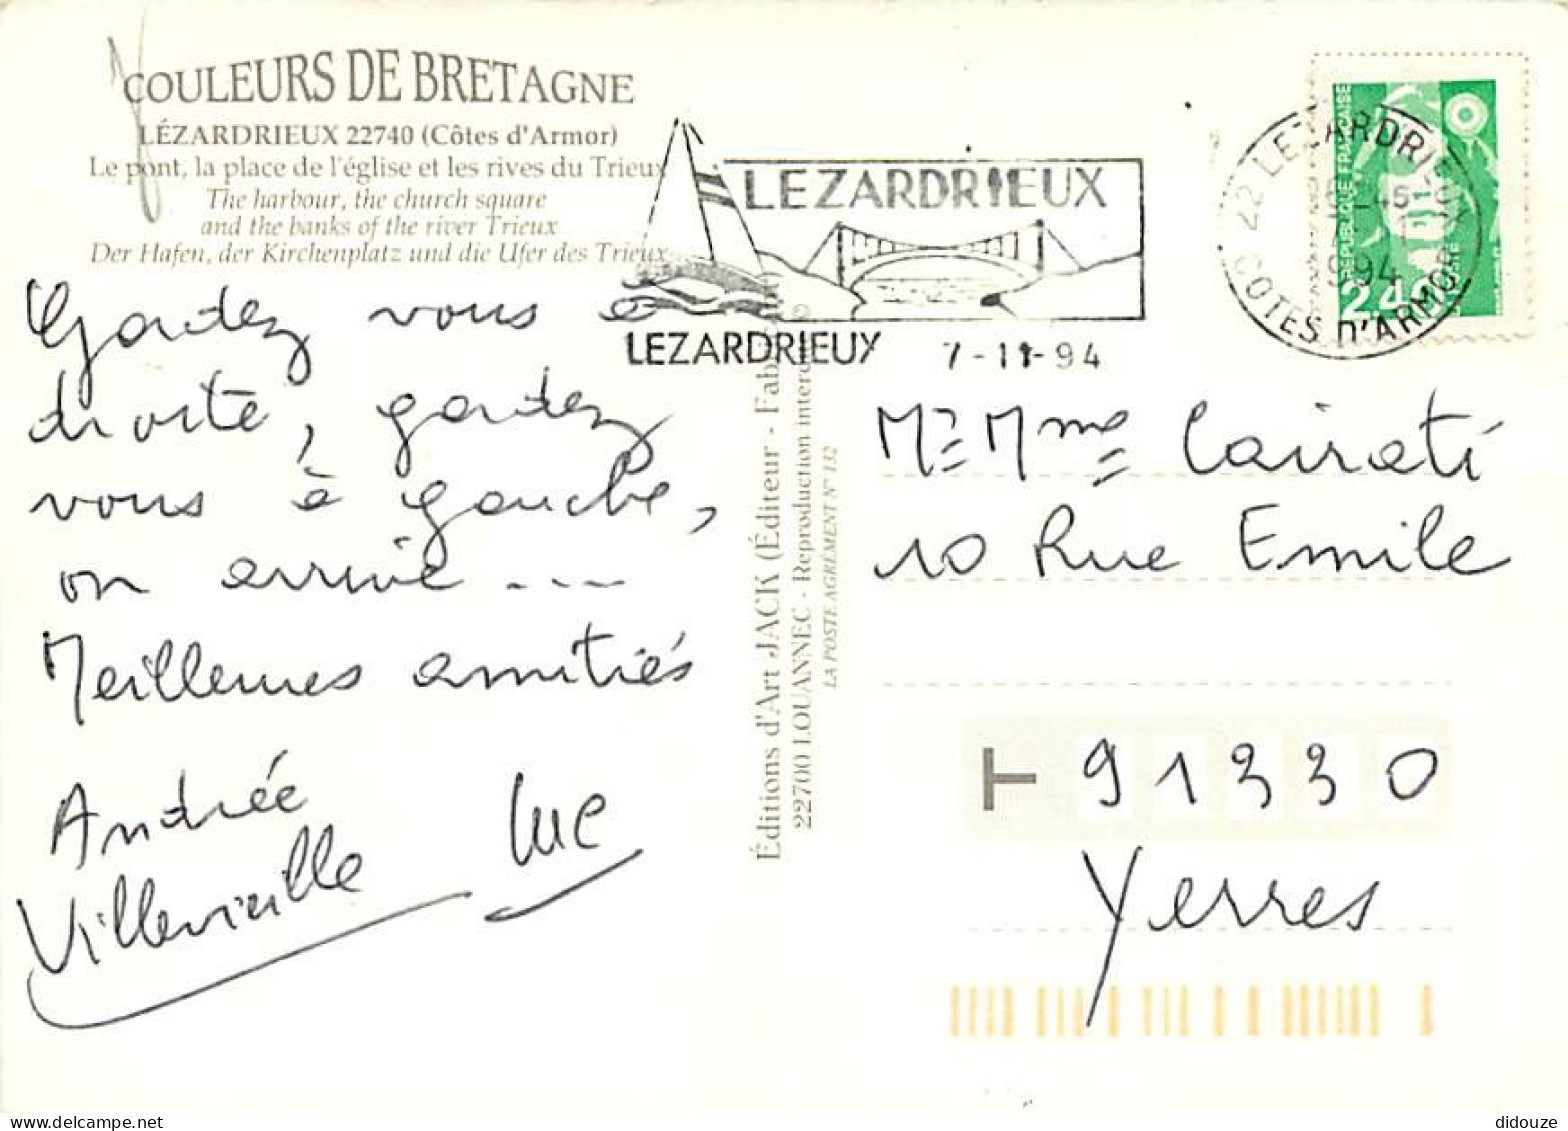 COULEURS DE BRETAGNE
LÉZARDRIEUX 22740 (Côtes d'Armor)
Le pont, la place de l'église et les rives du Trieux
The harbour, the church square
and the banks of the river Trieux
Der Hafen, der Kirchenplatz und die Ufer des Trieux
LEZARDRIEUX
LEZARDRIEUX 7-11-94
22 LEZARDRIEUX
COTES D'ARMOR
REPUBLIQUE FRANÇAISE
Gardez vous à
droite, gardez
vous à gauche,
on arrive ....
Meilleures amitiés
Andrée Luc
Villevieille
Éditions d'Art JACK (Éditeur - Fab
22700 LOUANNEC - Reproduction inter
LA POSTE AGRÉMENT N° 132
Mr Mme Cairati
10 Rue Emile
T 91330
Yerres
didouze